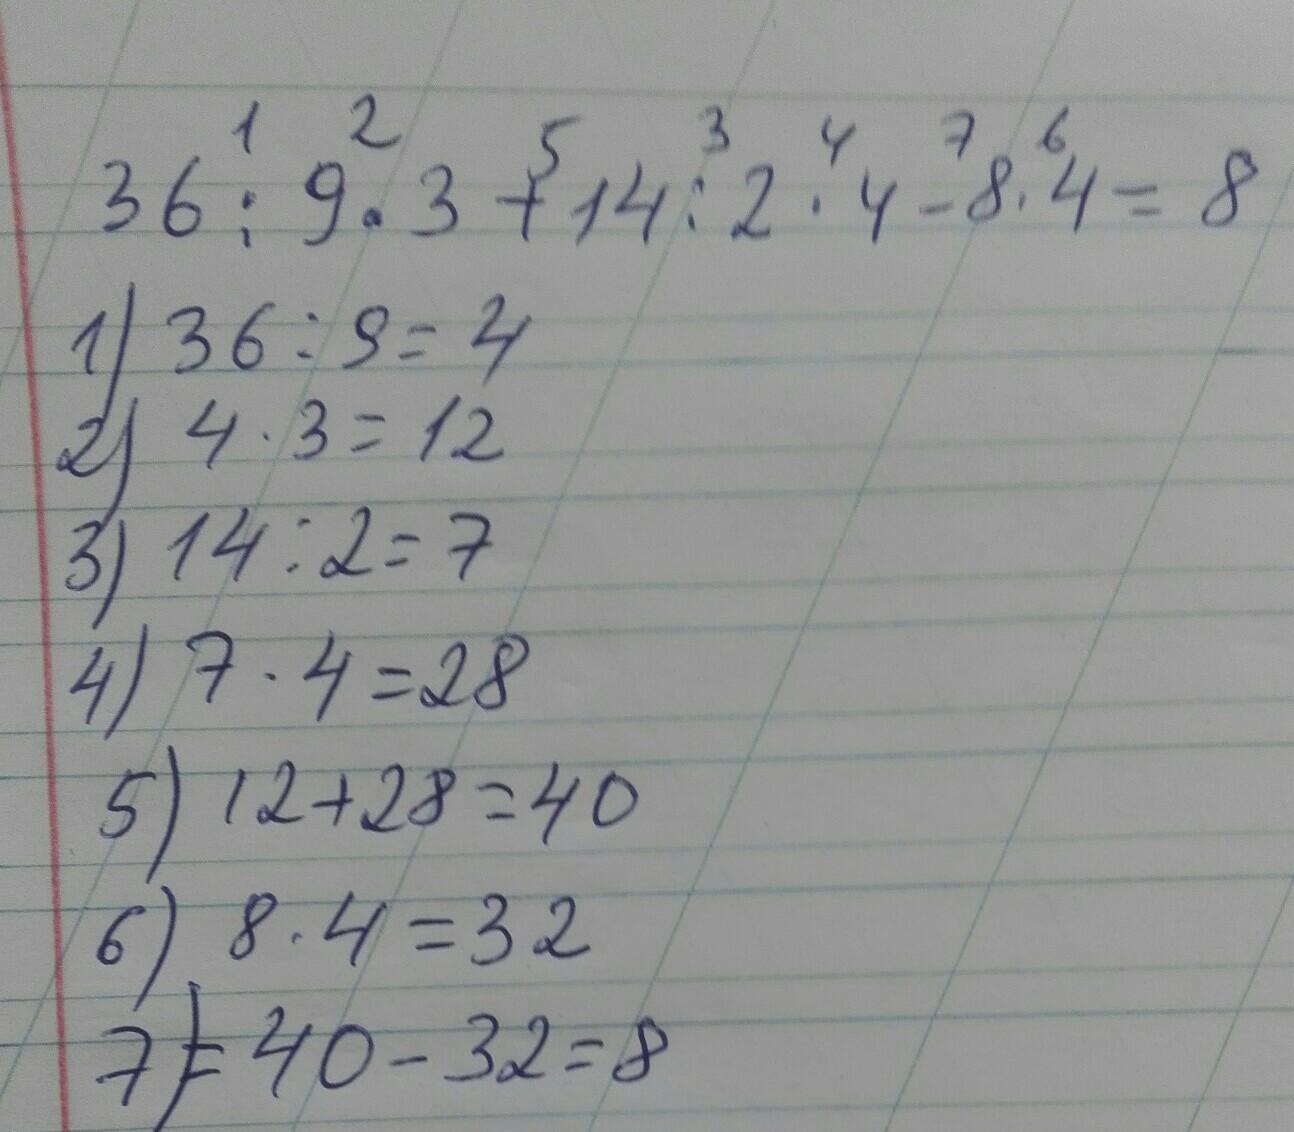 1 2 5 3 4 7 6
36 : 9 · 3 + 14 : 2 · 4 - 8 · 4 = 8
1) 36 : 9 = 4
2) 4 · 3 = 12
3) 14 : 2 = 7
4) 7 · 4 = 28
5) 12 + 28 = 40
6) 8 · 4 = 32
7) = 40 - 32 = 8